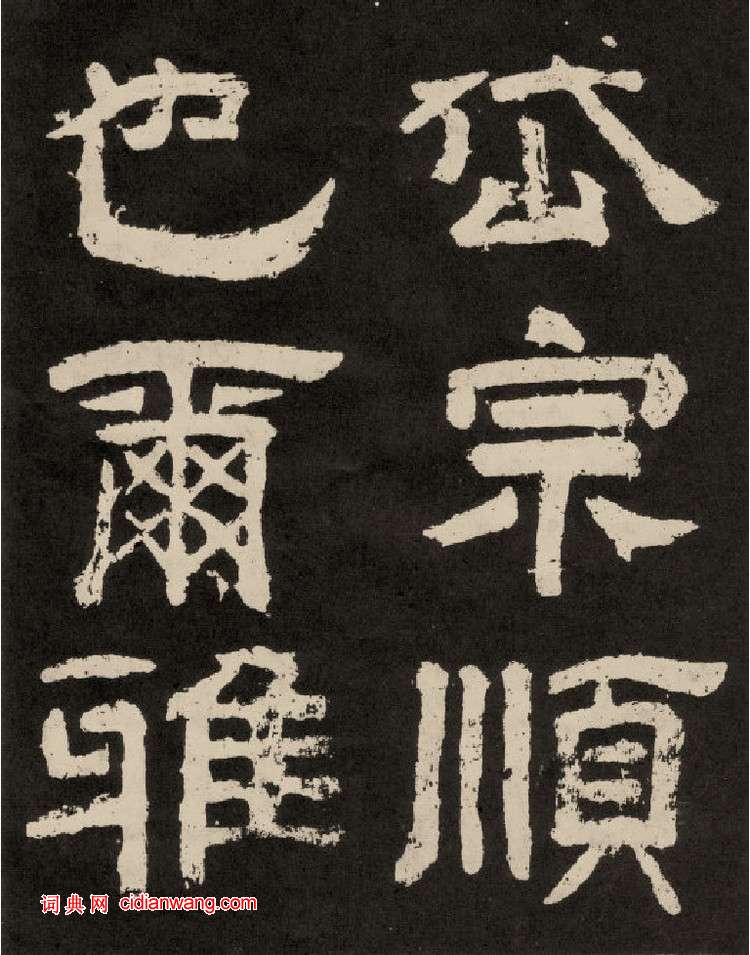 岱宗順
也爾雅
词典网 cidianwang.com